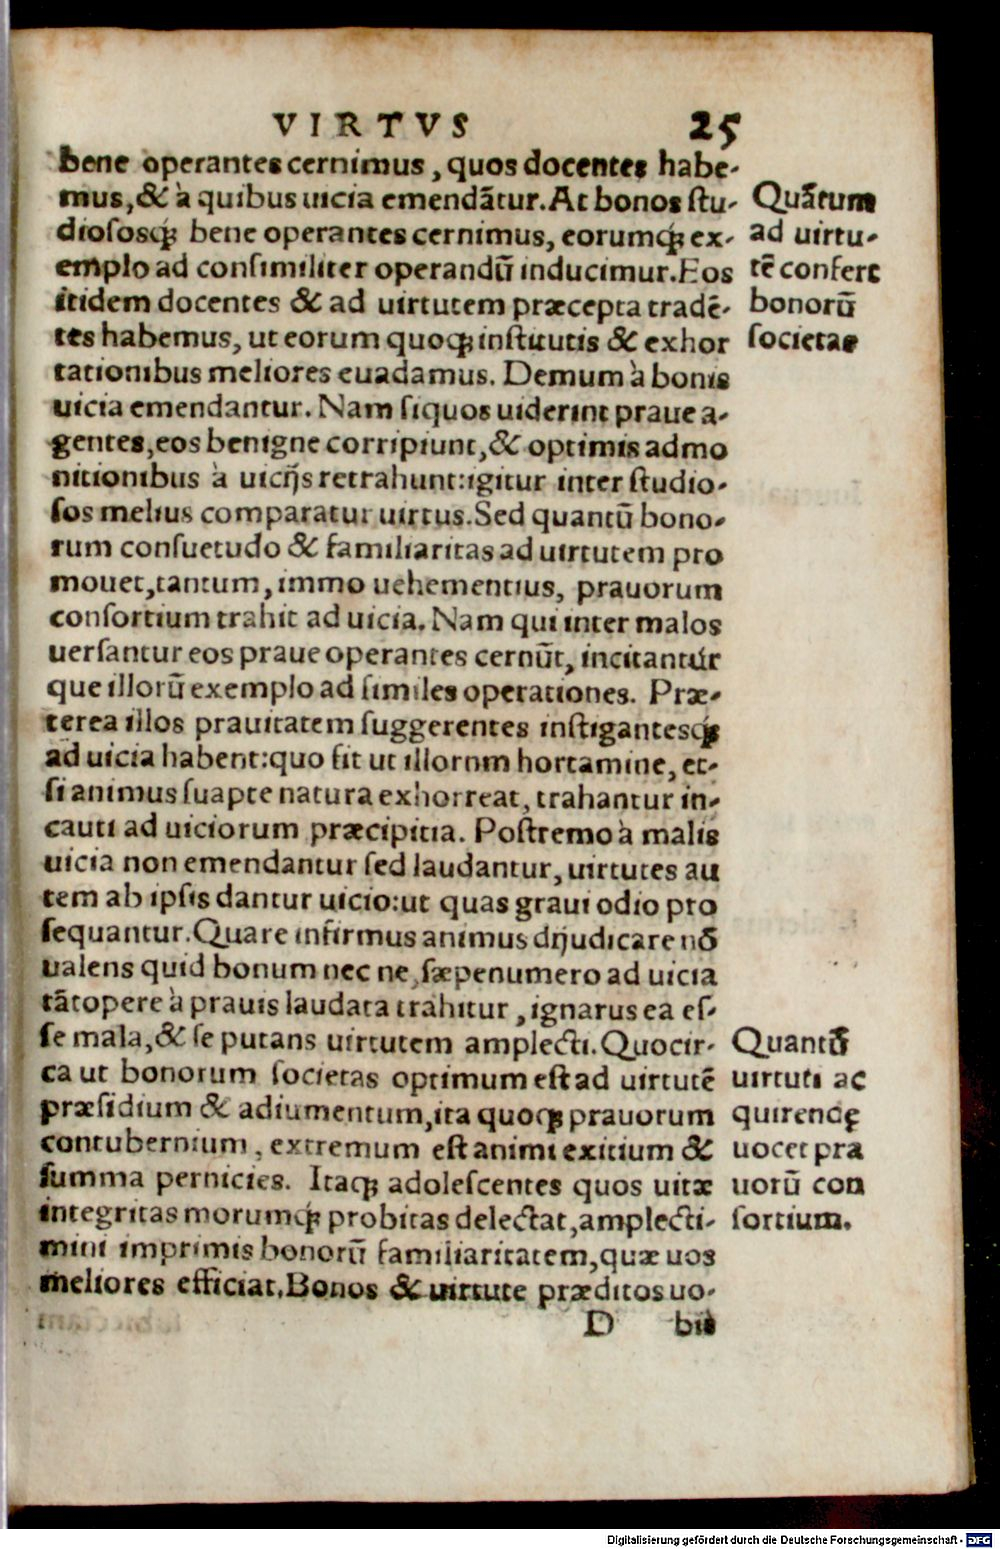 VIRTVS 25
bene operantes cernimus, quos docentes habe-
mus, & à quibus uicia emendãtur. At bonos stu-
diososq́ꝫ bene operantes cernimus, eorumq́ꝫ ex-
emplo ad consimiliter operandũ inducimur. Eos
itidem docentes & ad uirtutem præcepta tradẽ-
tes habemus, ut eorum quoqꝫ institutis & exhor
tationibus meliores euadamus. Demum à bonis
uicia emendantur. Nam siquos uiderint praue a-
gentes, eos benigne corripiunt, & optimis admo
nitionibus à uicijs retrahunt: igitur inter studio-
sos melius comparatur uirtus. Sed quantũ bono-
rum consuetudo & familiaritas ad uirtutem pro
mouet, tantum, immo uehementius, prauorum
consortium trahit ad uicia. Nam qui inter malos
uersantur eos praue operantes cernũt, incitantúr
que illorũ exemplo ad similes operationes. Præ-
terea illos prauitatem suggerentes instigantesq́ꝫ
ad uicia habent: quo fit ut illornm hortamine, et-
si animus suapte natura exhorreat, trahantur in-
cauti ad uiciorum præcipitia. Postremo à malis
uicia non emendantur sed laudantur, uirtutes au
tem ab ipsis dantur uicio: ut quas graui odio pro
sequantur. Quare infirmus animus dijudicare nõ
ualens quid bonum nec ne, sæpenumero ad uicia
tãtopere à prauis laudata trahitur, ignarus ea es-
se mala, & se putans uirtutem amplecti. Quocir-
ca ut bonorum societas optimum est ad uirtutẽ
præsidium & adiumentum, ita quoqꝫ prauorum
contubernium, extremum est animi exitium &
summa pernicies. Itaqꝫ adolescentes quos uitæ
integritas morumq́ꝫ probitas delectat, amplecti-
mini imprimis bonorũ familiaritatem, quæ uos
meliores efficiat. Bonos & uirtute præditos uo-
D bis
Quãtum
ad uirtu-
tẽ confert
bonorũ
societas
Quantũ
uirtuti ac
quirendę
nocet pra
uorũ con
sortium.
Digitalisierung gefördert durch die Deutsche Forschungsgemeinschaft - DFG